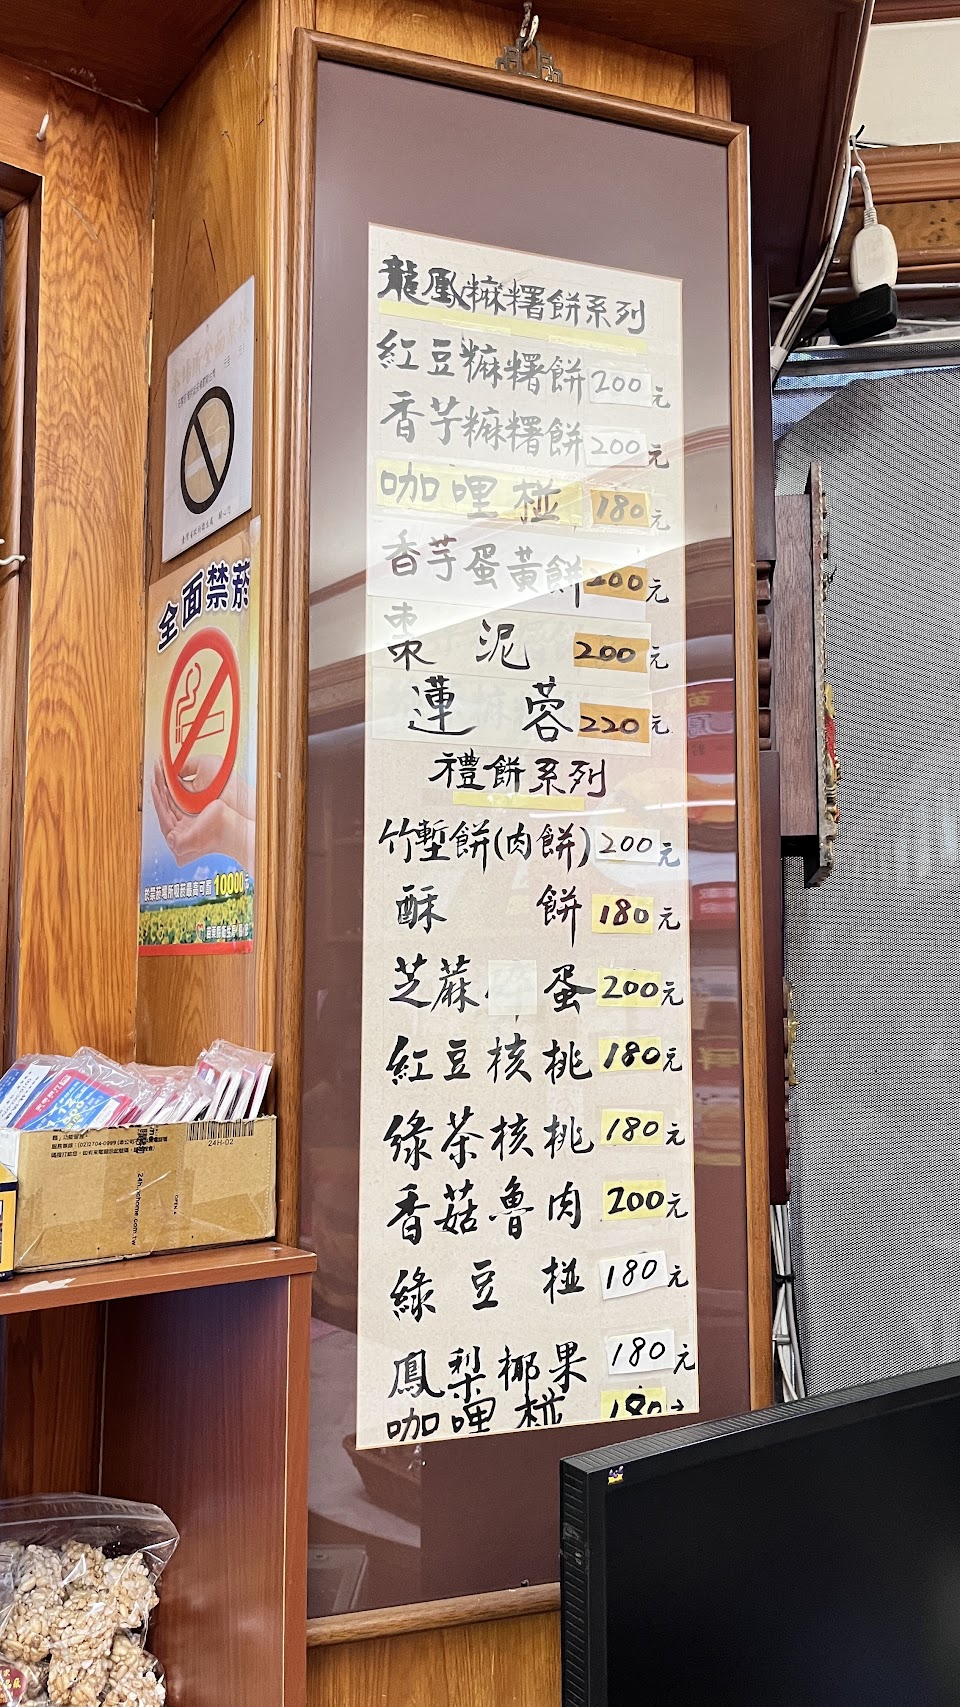 龍鳳糍糬餅系列
紅豆糍糬餅 200元
香芋糍糬餅 200元
咖哩椪 180元
香芋蛋黃餅 200元
棗泥 200元
蓮蓉 220元
禮餅系列
竹塹餅(肉餅) 200元
酥餅 180元
芝蔴 蛋 200元
紅豆核桃 180元
綠茶核桃 180元
香菇魯肉 200元
綠豆椪 180元
鳳梨椰果 180元
咖哩椪 180
全面禁菸
於禁菸場所吸菸最高可罰10000元
24H-02